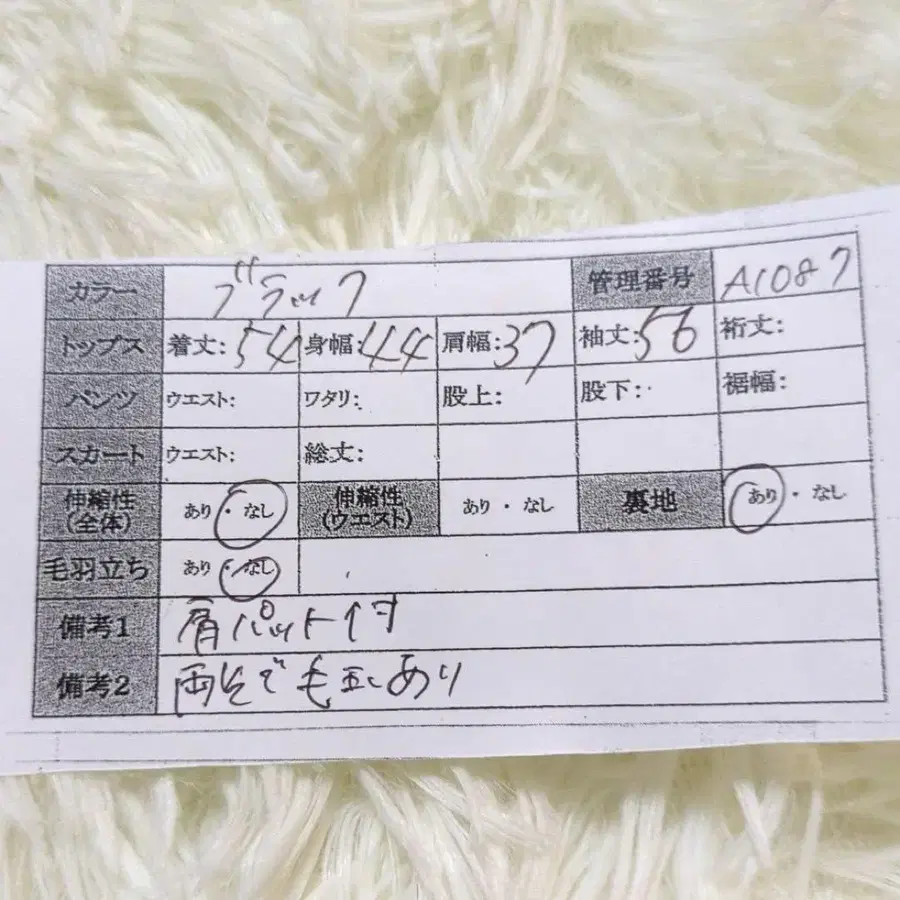 カラー ブラック 管理番号 A1087
トップス 着丈:54 身幅:44 肩幅:37 袖丈:56 裄丈:
パンツ ウエスト: ワタリ: 股上: 股下: 裾幅:
スカート ウエスト: 総丈:
伸縮性(全体) あり・なし 伸縮性(ウエスト) あり・なし 裏地 あり・なし
毛羽立ち あり・なし
備考1 肩パット付
備考2 両そで毛玉あり